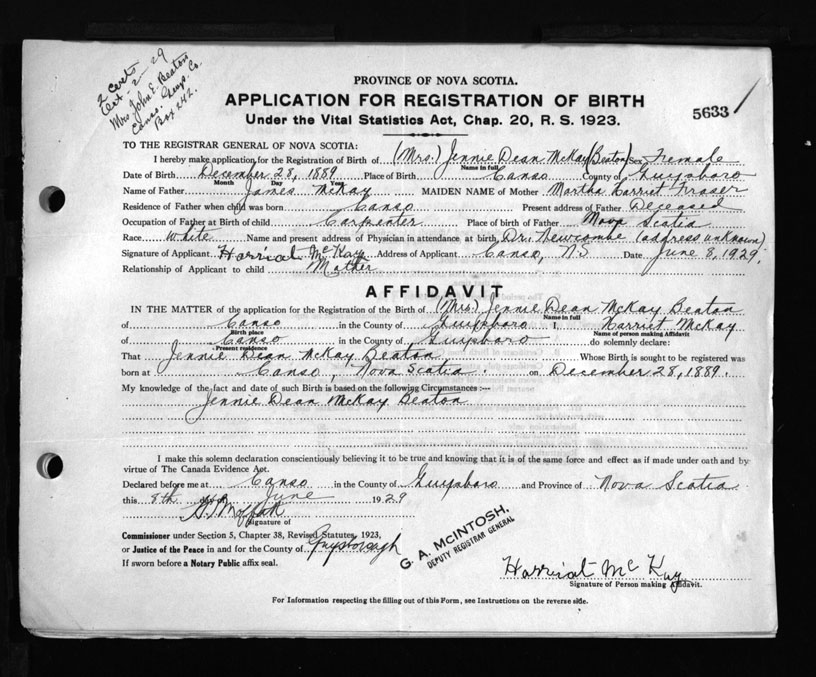 2 certs
Oct-2-29
Mrs John E. Beaton
Canso. Guys. Co.
Box 242.
PROVINCE OF NOVA SCOTIA.
APPLICATION FOR REGISTRATION OF BIRTH
Under the Vital Statistics Act, Chap. 20, R. S. 1923.
5633
TO THE REGISTRAR GENERAL OF NOVA SCOTIA:
I hereby make application for the Registration of Birth of (Mrs.) Jennie Dean McKay (Beaton) Sex Fremale
Name in full
Date of Birth December 28, 1889 Place of Birth Canso County of Guysboro
Month Day Year
Name of Father James McKay MAIDEN NAME of Mother Martha Harriet Fraser
Residence of Father when child was born Canso Present address of Father Deceased
Occupation of Father at Birth of child Carpenter Place of birth of Father Nova Scotia
Race white Name and present address of Physician in attendance at birth, Dr. Newcombe (address unknown)
Signature of Applicant Harriat McKay Address of Applicant Canso, N.S Date June 8, 1929,
Relationship of Applicant to child Mother
AFFIDAVIT
IN THE MATTER of the application for the Registration of the Birth of (Mrs.) Jennie Dean McKay Beaton
Name in full
of Canso in the County of Guysboro I, Harriet McKay
Birth place Name of person making Affidavit
of Canso in the County of Guysboro do solemnly declare:
Present residence
That Jennie Dean McKay Beaton Whose Birth is sought to be registered was
born at Canso, Nova Scotia. on December 28, 1889.
My knowledge of the fact and date of such Birth is based on the following Circumstances :—
Jennie Dean McKay Beaton
I make this solemn declaration conscientiously believing it to be true and knowing that it is of the same force and effect as if made under oath and by
virtue of The Canada Evidence Act.
Declared before me at Canso in the County of Guysboro and Province of Nova Scotia.
this 8th day of June 1929
Signature of
Commissioner under Section 5, Chapter 38, Revised Statutes, 1923,
or Justice of the Peace in and for the County of Guysborough
If sworn before a Notary Public affix seal.
G. A. McINTOSH,
DEPUTY REGISTRAR GENERAL
Harriat McKay
Signature of Person making Affidavit.
For Information respecting the filling out of this Form, see Instructions on the reverse side.